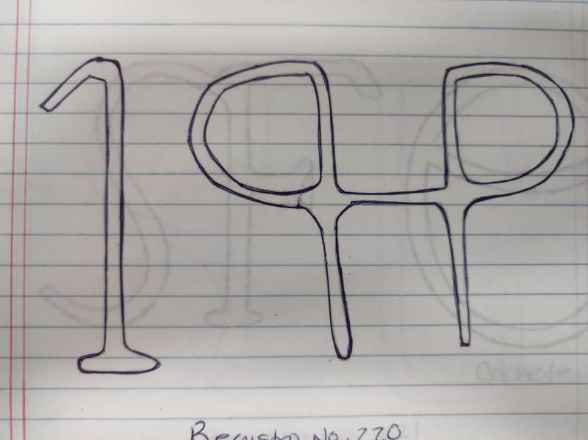 Registro No. 220